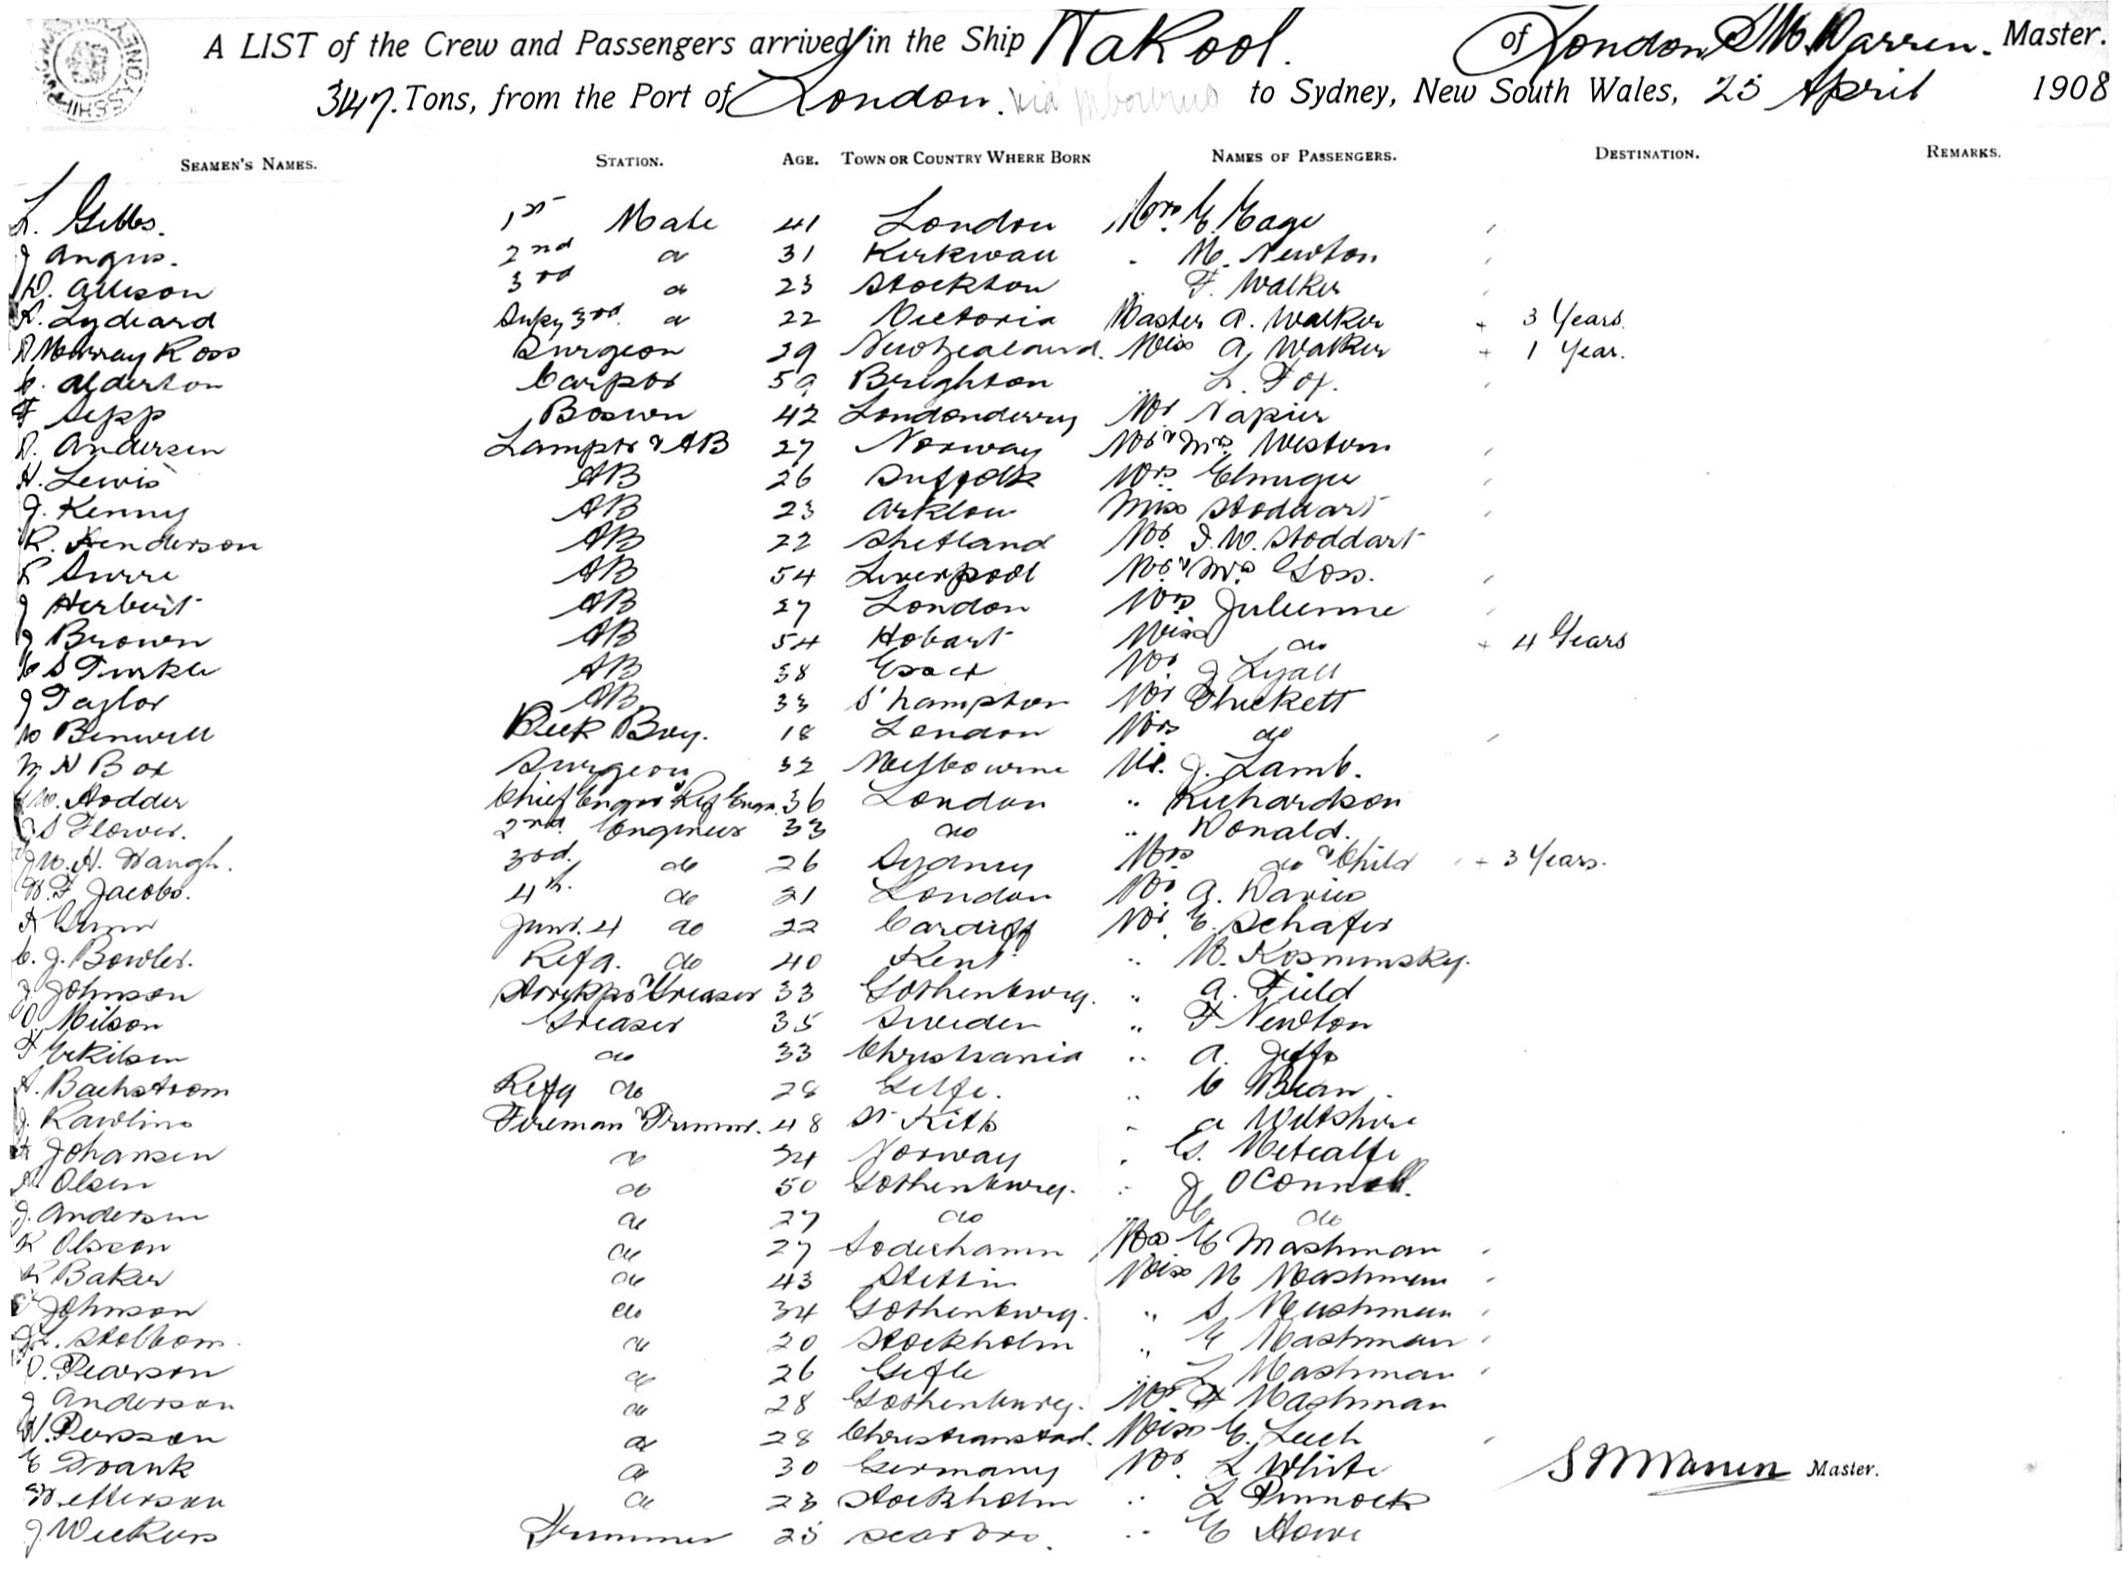 A LIST of the Crew and Passengers arrived in the Ship Wakool. of London S M Warren. Master.
347. Tons, from the Port of London. via to Sydney, New South Wales, 25 April 1908
SEAMEN'S NAMES. STATION. AGE. TOWN OR COUNTRY WHERE BORN NAMES OF PASSENGERS. DESTINATION. REMARKS.
L. Gibbs. 1st Mate 41 London Mrs. E. Gage
J Angus. 2nd do 31 Kirkwall " M. Newton
D. Allison 3rd do 23 Stockton " F. Walker
R. Lydeard Supy 3rd do 22 Victoria Master A. Walker + 3 Years.
D Murray Ross Surgeon 29 New Zealand. Miss A, Walker + 1 Year.
C. Alderton Carptr 59 Brighton " L. Fox.
F Sepp Boswn 42 Londonderry Mr Napier
D. Andersen Lamptr & AB 27 Norway Mr & Mrs Western
H. Lewis AB 26 Suffolk Mrs
J. Kenny AB 23 Arklow Miss Stoddart
R. Henderson AB 22 Shetland Mr. J. W. Stoddart
AB 54 Liverpool Mr. & Mrs Goss.
J Herbert AB 27 London Mrs Julienne
J Brown AB 54 Hobart Miss do + 4 Years
C S Turkle AB 38 Essex Mr J Lyall
J Taylor AB 33 S'hampton Mr Thickett
W Benwell Deck Boy. 18 London Mrs do
M N Box Surgeon 32 Melbourne Mr. J. Lamb.
W. Hodder Chief Engnr & Refg Engr. 36 London " Richardson
S Flower. 2nd. Engineer 33 do " Donald.
J W. H. Waugh. 3rd. do 26 Sydney Mrs do & Child + 3 Years.
W. F Jacobs. 4th. do 21 London Mr. A. Davies
A Gunn Junr. 4 do 22 Cardiff Mr. E. Schafer
C. J. Bowler. Refg. do 40 Kent " M. Kosminsky.
J Johnson Storekpr & Greaser 33 Gothenburg. " A. Field
O. Nilson Greaser 35 Sweden " F Newton
F Eekilsen do 33 Christiania " A. Jeffs
A. Backstrom Refg do 28 Gelfe. " C Bean.
J. Rawlins Fireman & Trimmr. 48 St Kitts " A Wiltshire
A Johansen do 34 Norway " G. Metcalfe
A Olsen do 50 Gothenburg. " J OConnell.
J. Andersen do 27 do " do
K Olsson do 27 Soderhamn Mrs E Mashman
Baker do 43 Stettin Miss M Mashman
Johnson do 34 Gothenburg. " S Mashman
Stolbom. do 20 Stockholm " E Mashman
O. Pearson do 26 Gefle " L Mashman
J Anderson do 28 Gothenburg. Mr H Mashman
H. Persson do 28 Christianstad. Miss E. Leech
E Frank do 30 Germany Mr. L White
Petterson do 23 Stockholm " L Pinnock
J Wickers Trimmer 25 Scarbro. " E Howe
S M Warren Master.